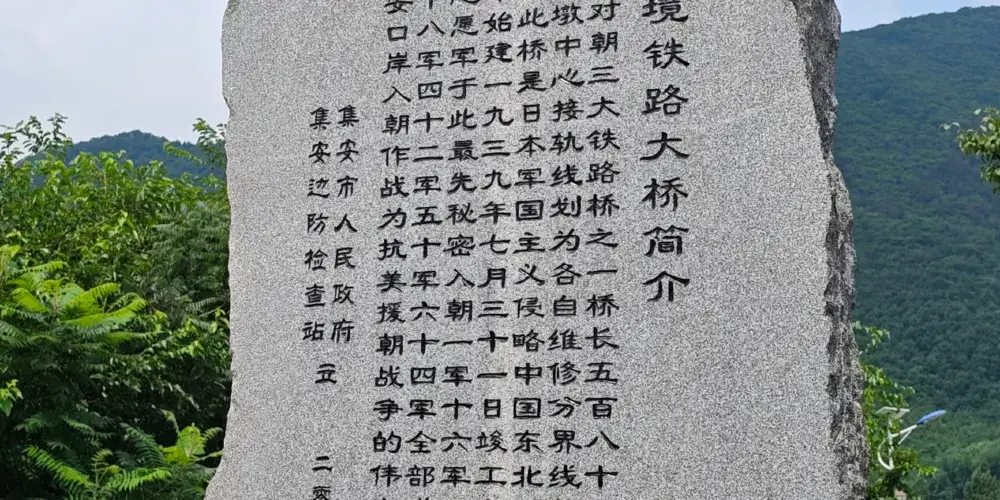 境铁路大桥简介
对朝三大铁路桥之一桥长五百八十
墩中心接轨线划为各自维修分界线
此桥是日本军国主义侵略中国东北
始建一九三九年七月三十一日竣工
愿军于此最先秘密入朝一军十六军
十八军四十二军五十军六十四军全部
安口岸入朝作战为抗美援朝战争的伟
集安市人民政府
集安边防检查站 立 二零